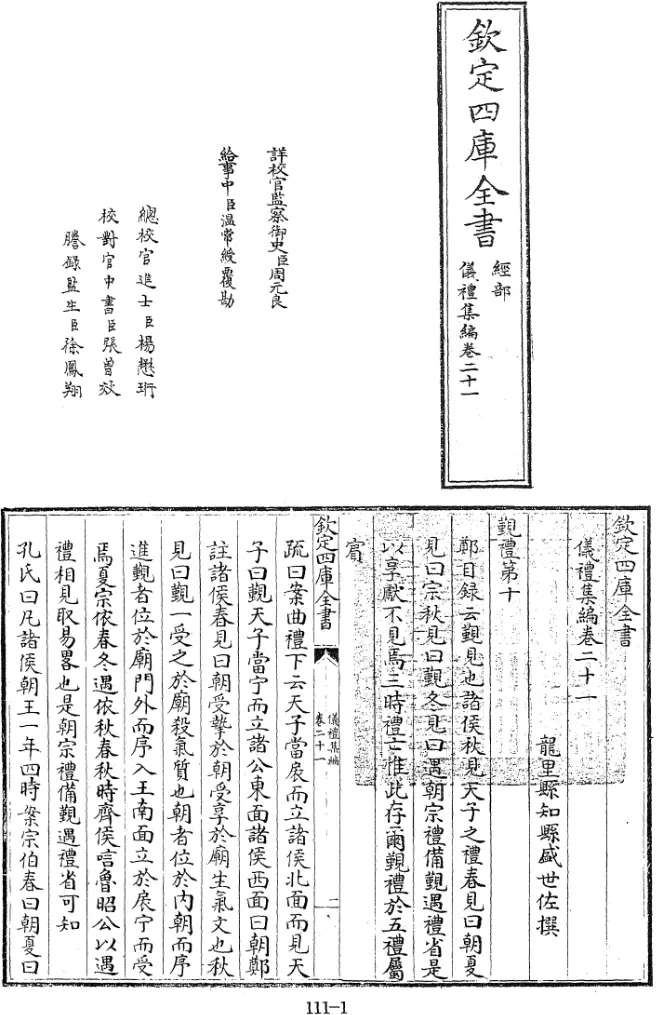 欽定四庫全書
經部
儀禮集編卷二十一
詳校官監察御史臣周元良
給事中臣溫常綬覆勘
總校官進士臣楊懋珩
校對官中書臣張曾效
謄錄監生臣徐鳳翔
欽定四庫全書
儀禮集編卷二十一
龍里縣知縣盛世佐撰
覲禮第十
鄭目録云覲見也諸侯秋見天子之禮春見曰朝夏
見曰宗秋見曰覲冬見曰遇朝宗禮備覲遇禮省是
以享獻不見焉三時禮亡惟此存爾覲禮於五禮屬
賔
欽定四庫全書
儀禮集編
卷二十一
一
疏曰案曲禮下云天子當扆而立諸侯北面而見天
子曰覲天子當宁而立諸公東面諸侯西面曰朝鄭
註諸侯春見曰朝受摯於朝受享於廟生氣文也秋
見曰覲一受之於廟殺氣質也朝者位於内朝而序
進覲者位於廟門外而序入王南面立於扆宁而受
焉夏宗依春冬遇依秋春秋時齊侯唁魯昭公以遇
禮相見取易畧也是朝宗禮備覲遇禮省可知
孔氏曰凡諸侯朝王一年四時案宗伯春曰朝夏曰
111-1